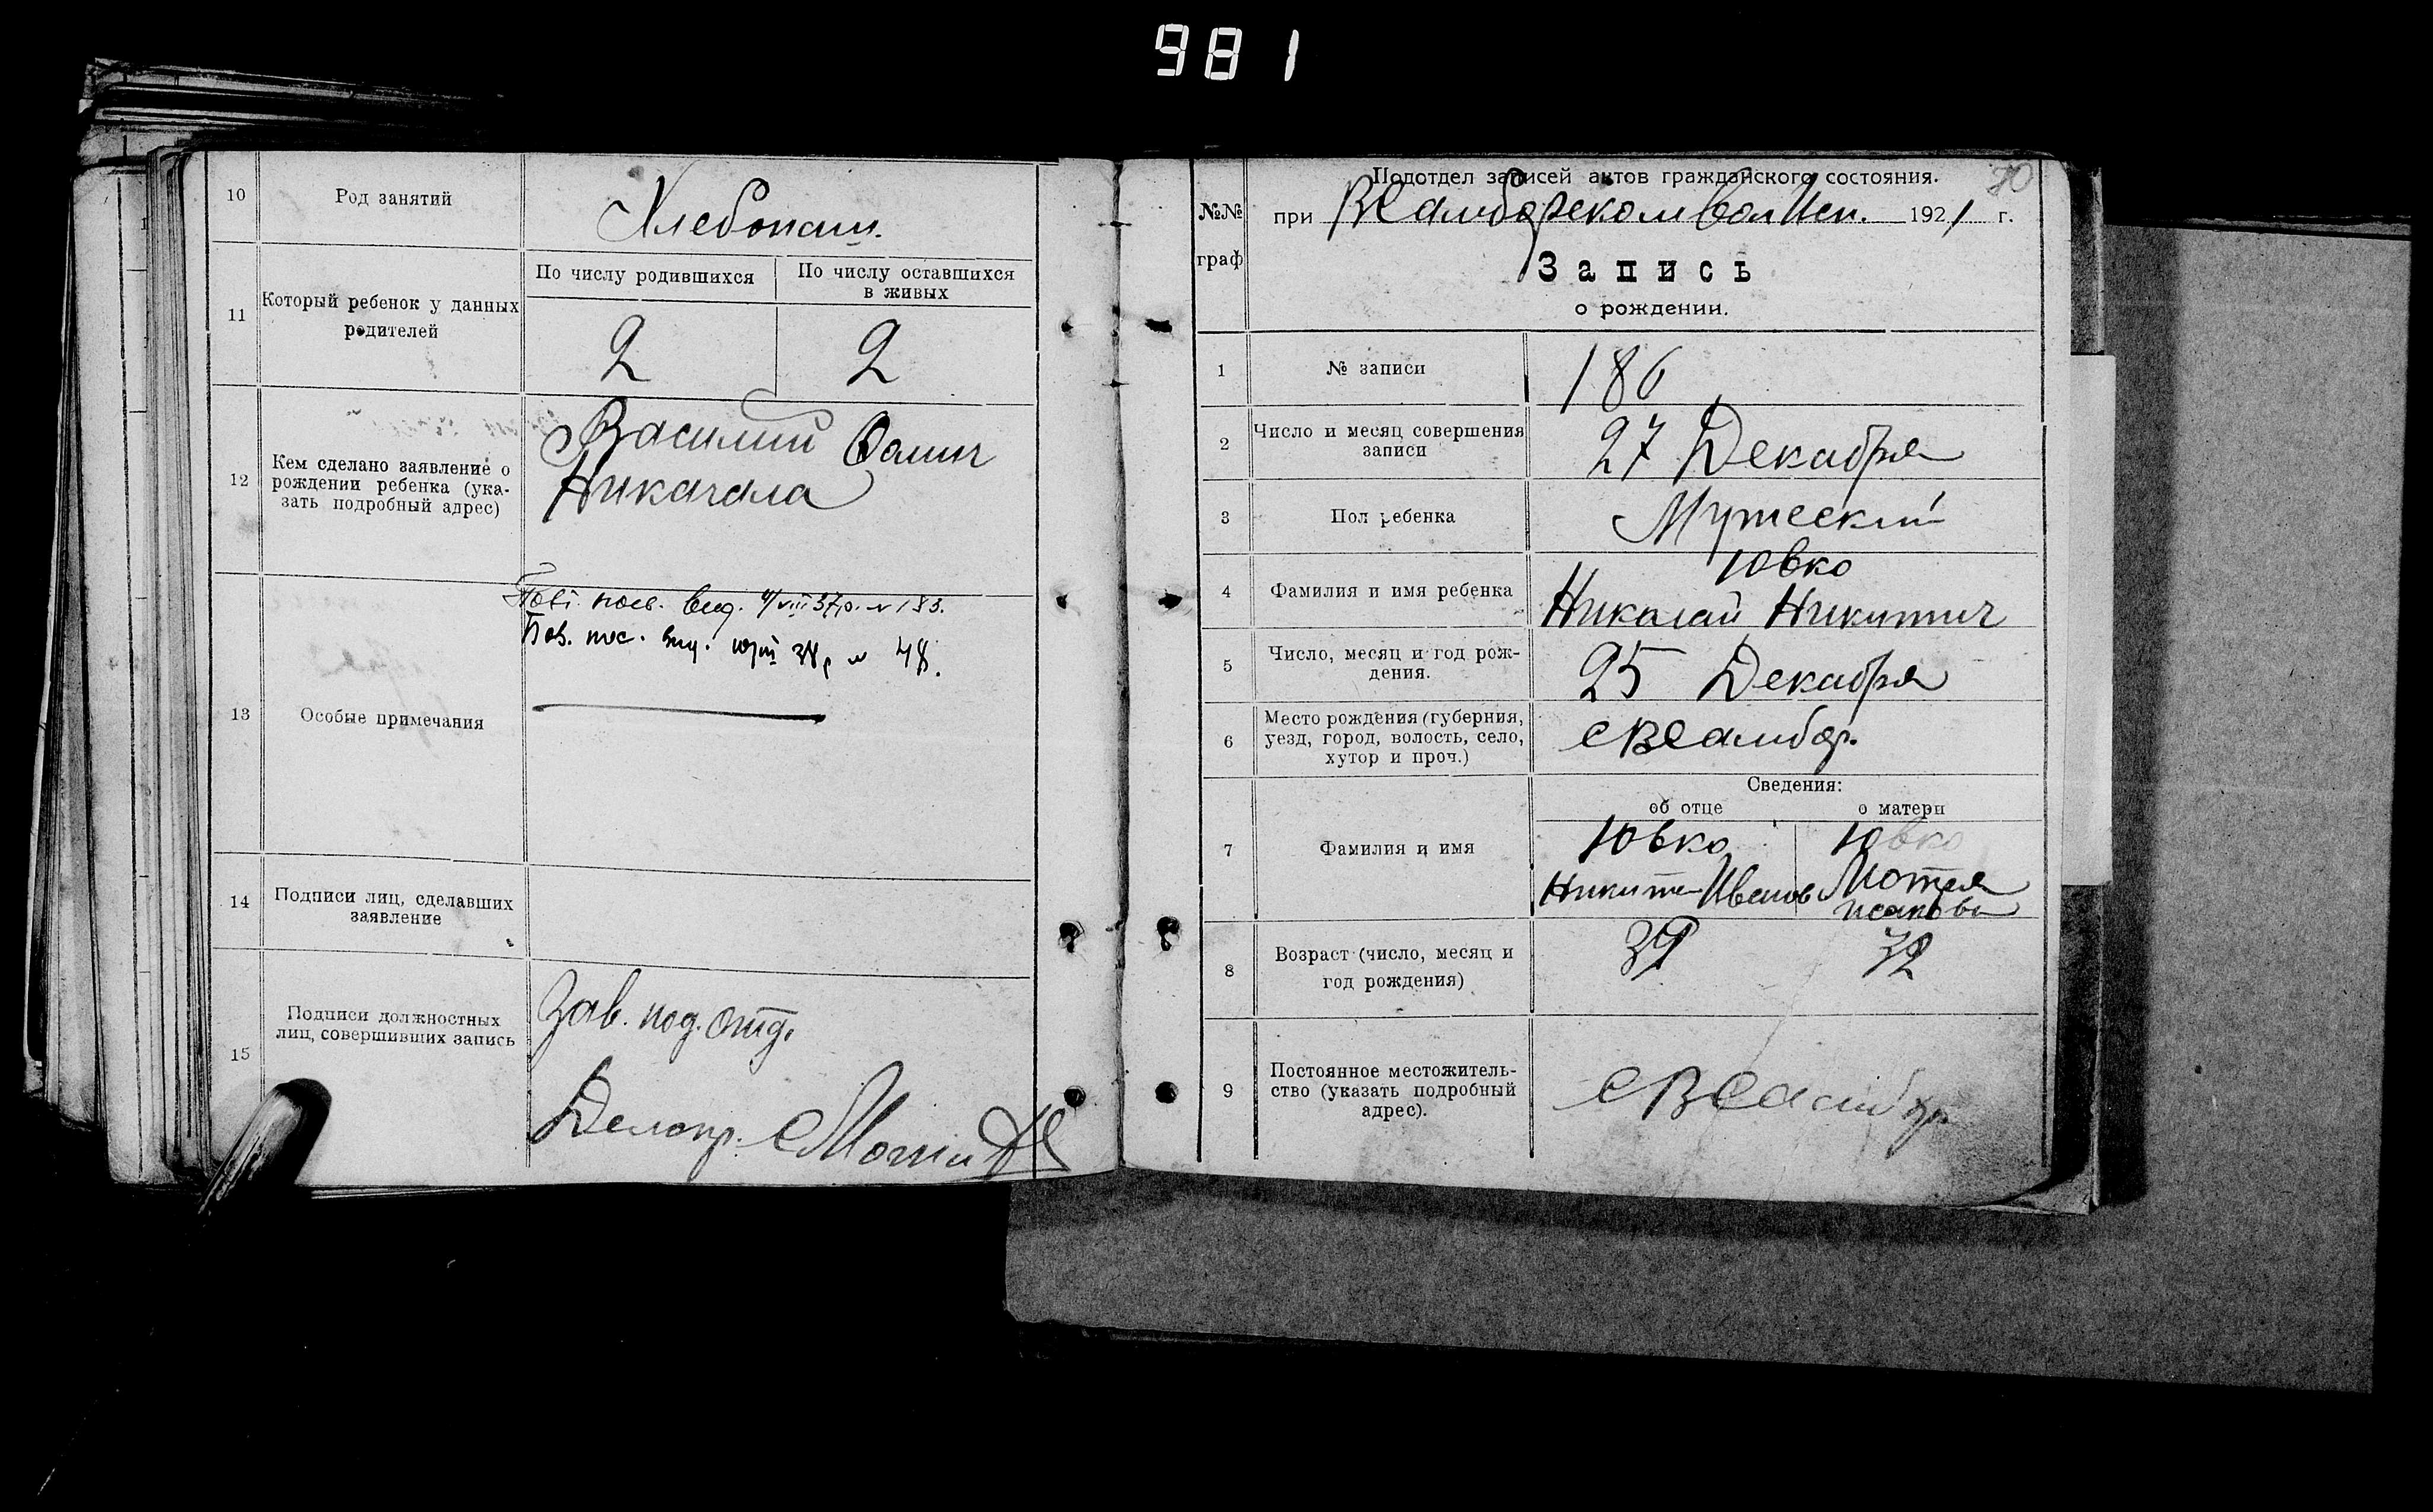 981
10
Род занятий
Хлебопаш.
11
Который ребенок у данных
родителей
По числу родившихся
По числу оставшихся
в живых
2
2
12
Кем сделано заявление о
рождении ребенка (ука-
зать подробный адрес)
Василий Фомич
13
Особые примечания
вид. 4/VIII 37р. N 183.
Пов. вид. 38р N 48.
14
Подписи лиц, сделавших
заявление
15
Подписи должностных
лиц, совершивших запись
Зав. под. отд.
Делопр.
80
Подотдел записей актов гражданского состояния.
№№
граф
при ВСамборском вол Исп. 1921 г.
Запись
о рождении.
1
№ записи
186
2
Число и месяц совершения
записи
27 Декабря
3
Пол ребенка
Мужеский
4
Фамилия и имя ребенка
Ювко
Николай Никитич
5
Число, месяц и год рож-
дения.
25 Декабря
6
Место рождения (губерния,
уезд, город, волость, село,
хутор и проч.)
с ВСамбор.
Сведения:
об отце
о матери
7
Фамилия и имя
Ювко
Ювко
Никита Иванов
Мотря
8
Возраст (число, месяц и
год рождения)
39
32
9
Постоянное местожитель-
ство (указать подробный
адрес).
с ВСамбор.